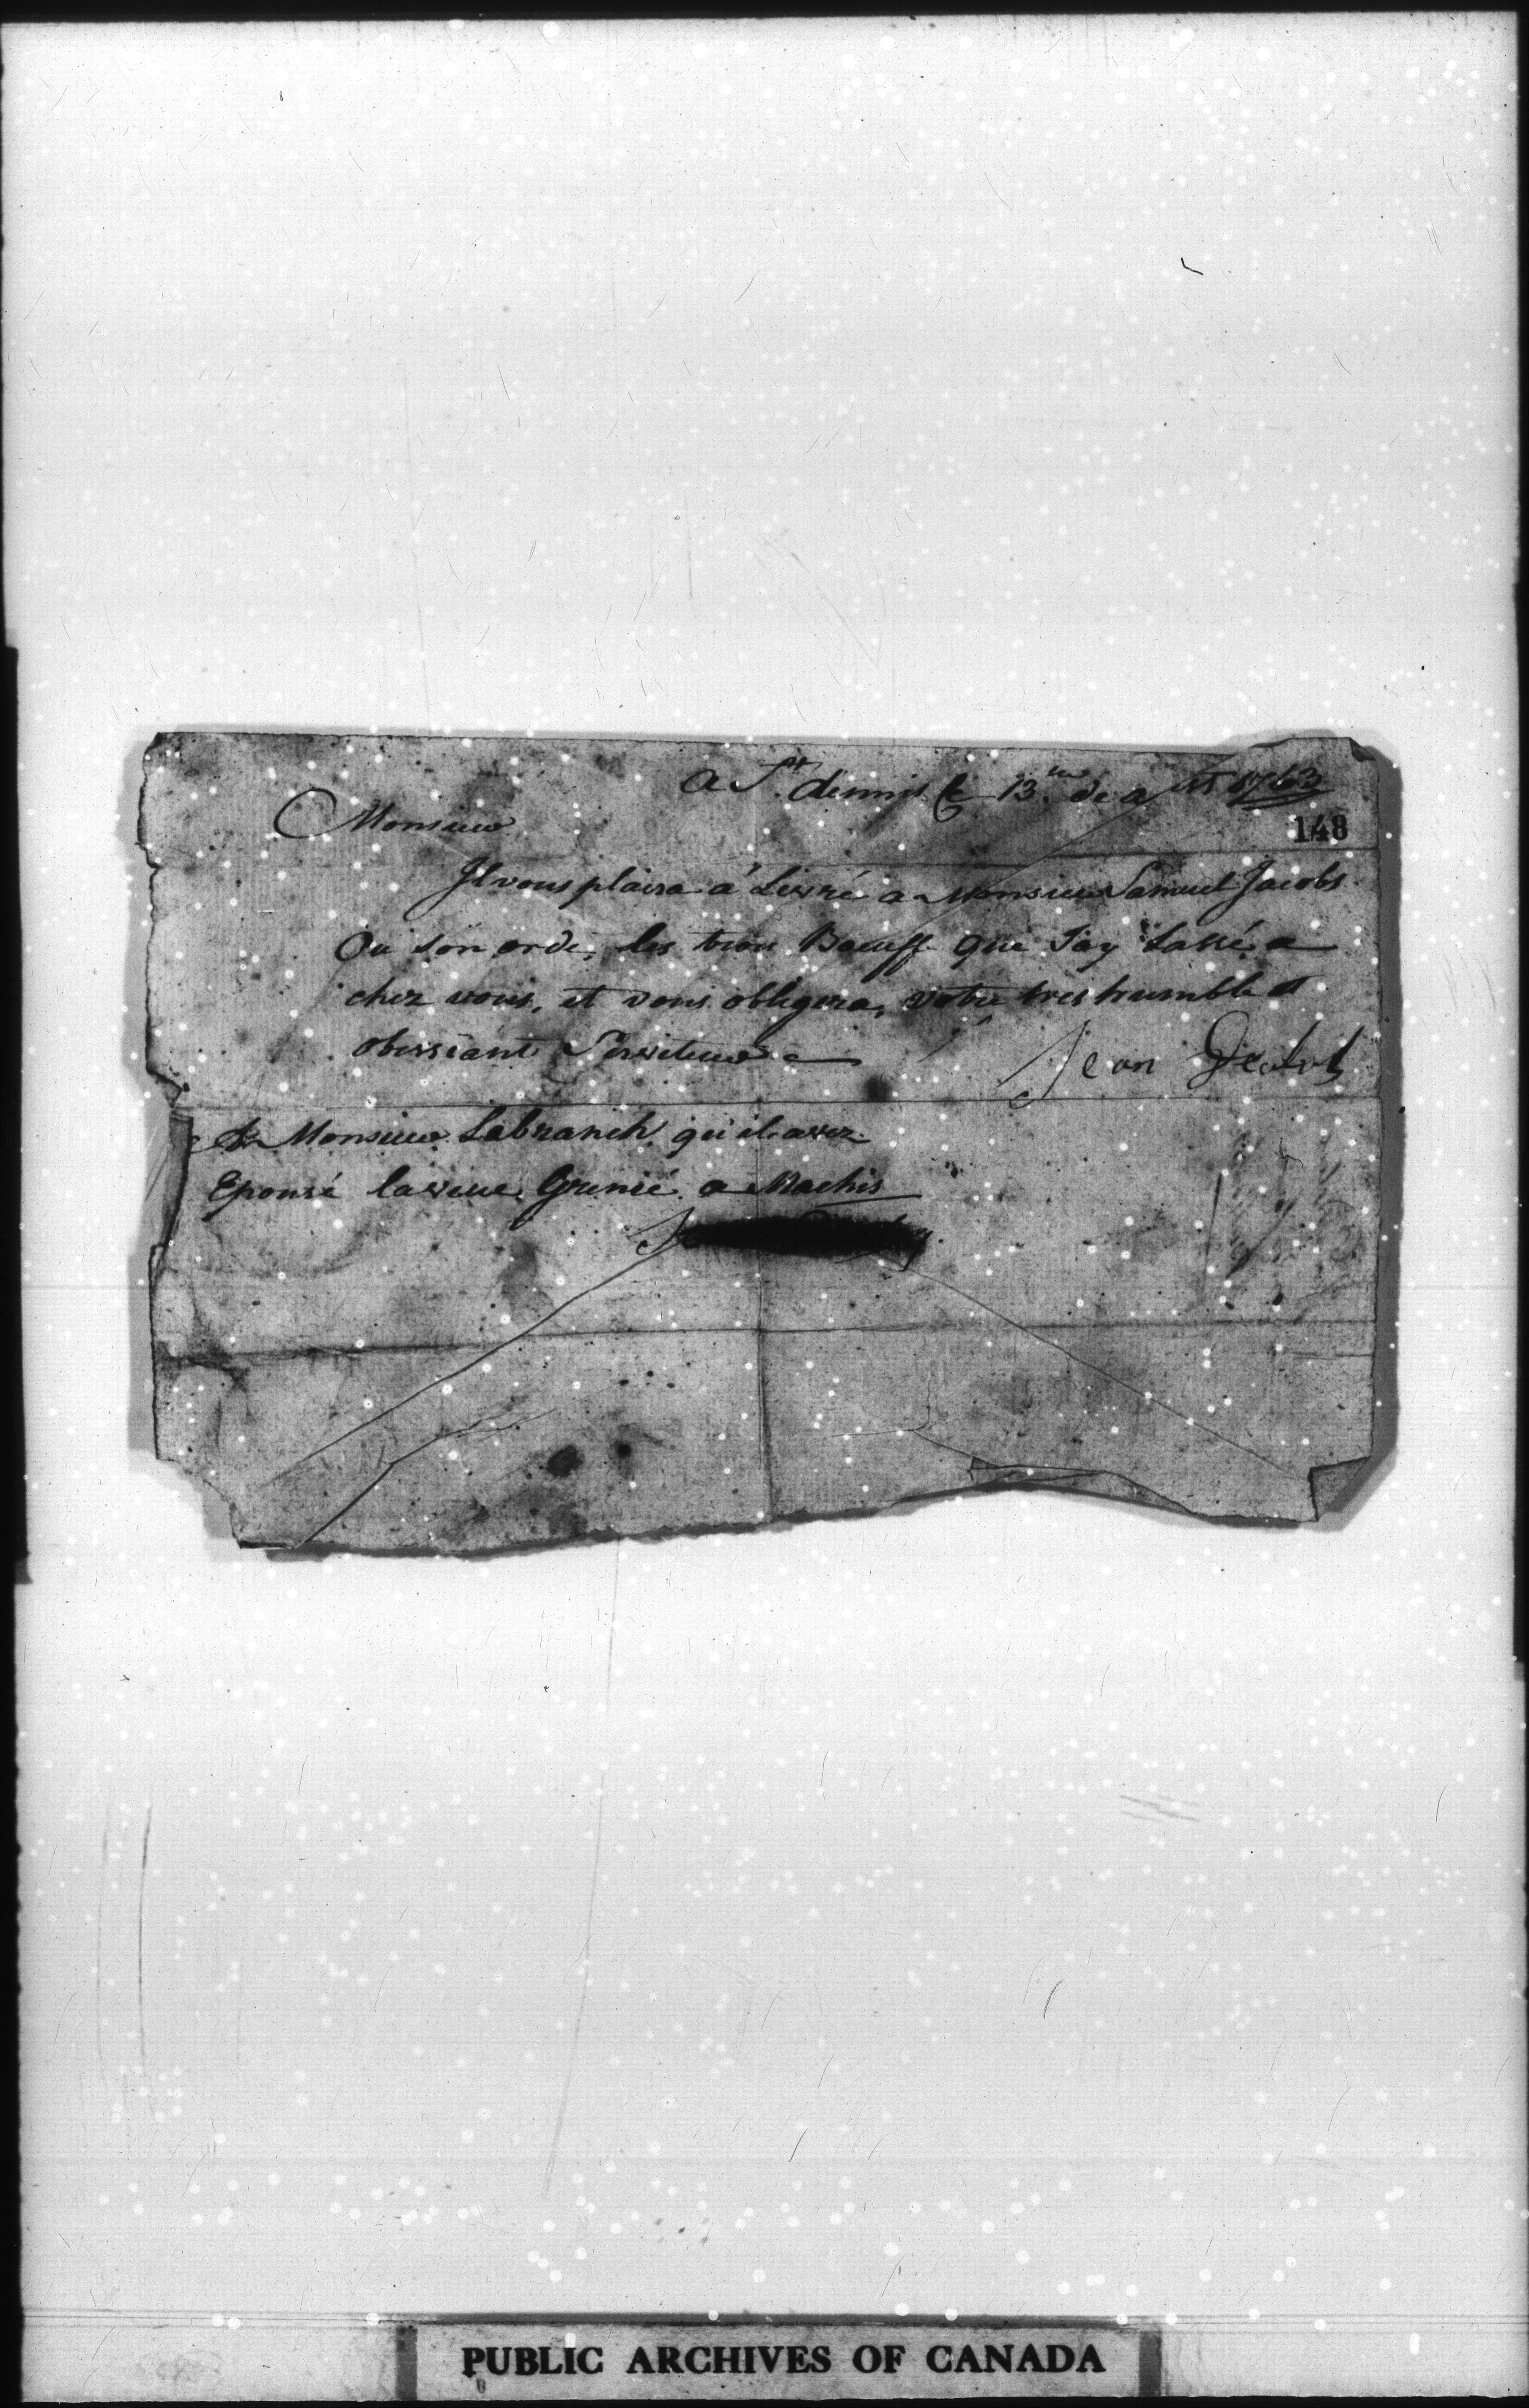 A St. dennis le 13.me de aust 1763
Monsieur
148
Il vous plaira a Livré a Monsieur Samuel Jacobs
Ou son orde, les trois Baeuff que Jay Lassé a
chez vous, et vous obligera, votre tres humble et
obissiant Serviteur
Jean
A Monsieur Labranch qui il avez
Epousé la veuve Grenié a Machis
PUBLIC ARCHIVES OF CANADA